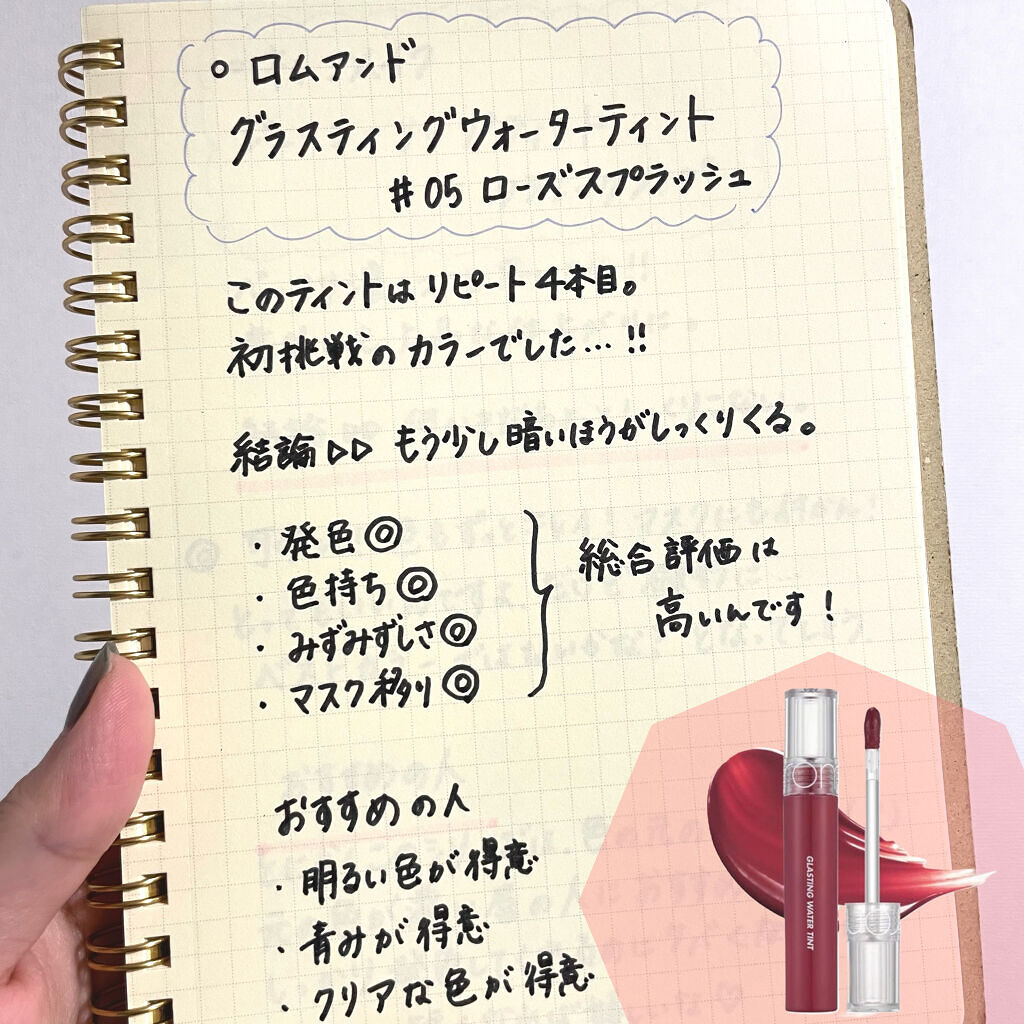 ○ ロムアンド
グラスティングウォーターティント
#05 ローズスプラッシュ
このティントは リピート 4本目。
初挑戦の カラーでした…!!
結論▷▷ もう少し暗いほうがしっくりくる。
・発色◎
・色持ち◎
・みずみずしさ◎
・マスク移り◎
総合評価は
高いんです!
おすすめの人
・明るい色が得意
・青みが得意
・クリアな色が得意
GLASTING WATER TINT